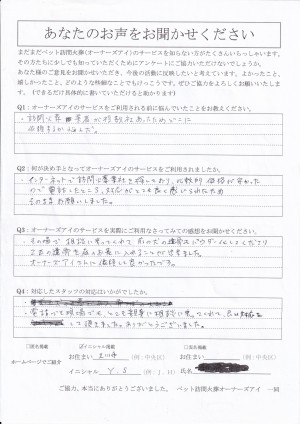 あなたのお声をお聞かせください
まだまだペット訪問火葬(オーナーズアイ)のサービスを知らない方がたくさんいらっしゃいます。
その方たちに少しでも知っていただくためにアンケートにご協力いただけないでしょうか。
あなた様のご意見をお聞かせいただき、今後の活動に反映したいと考えています。よかったこと、
嬉しかったこと、どのような些細なことでもけっこうです。ぜひご協力をよろしくお願いいたし
ます。(できるだけ具体的に書いていただけると助かります)
Q1:オーナーズアイのサービスをご利用される前に悩んでいたことをお教えください。
・訪問火葬 業者が複数社あったためどこに
依頼するか悩んだ。
Q2:何が決め手となってオーナーズアイのサービスをご利用されましたか。
・インターネットで訪問火葬業者を探しており、比較的 価格が安かった
ので電話したところ、対応がとても良く感じられたため
そのままお願いしました。
Q3:オーナーズアイのサービスを実際にご利用なさってみての感想をお聞かせください。
・その場で相談に乗ってくれて、前の犬の遺骨もパウダーにしてくださり
2匹の遺骨を
オーナーズアイさんに依頼して良かったです。
Q4:対応したスタッフの対応はいかがでしたか。
・電話でも現場でも、とても親身に相談に乗ってくれて、
して頂きました。ありがとうございました。
□匿名掲載 ☑イニシャル掲載 □実名掲載
ホームページでご紹介 お住まい 立川市 (例:中央区) お住まい (例:中央区)
イニシャル Y.S (例:J.H) 氏名
ご協力、本当にありがとうございました。 ペット訪問火葬オーナーズアイ 一同